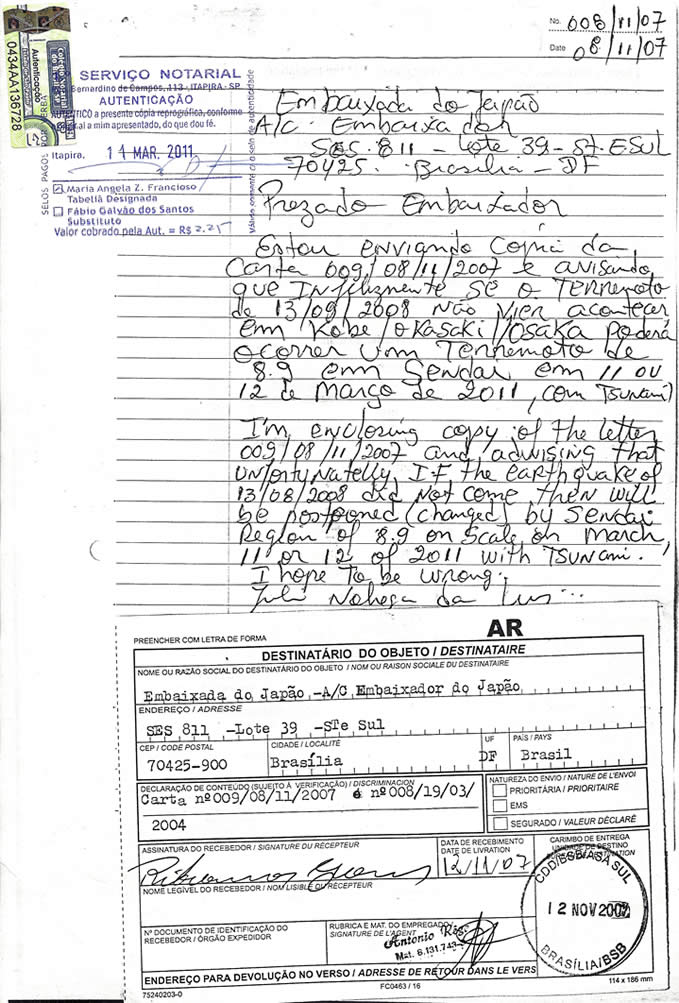 No. 008/11/07
Date 08/11/07
0434AA136728
Autenticação
SELOS PAGOS POR VERBA
SERVIÇO NOTARIAL
Bernardino de Campos, 113 - ITAPIRA - SP
AUTENTICAÇÃO
AUTENTICO a presente cópia reprográfica, conforme
original a mim apresentado, do que dou fé.
Itapira, 14 MAR. 2011
Maria Angela Z. Francioso
Tabeliã Designada
Fábio Galvão dos Santos
Substituto
Valor cobrado pela Aut. = R$ 2.25
Válido somente com o selo de autenticidade
Embaixada do Japão
A/C. Embaixador
SES 811 - Lote 39 - St. E. SUL
70425. Brasília - DF
Prezado Embaixador
Estou enviando Copia da
Carta 009/08/11/2007 e avisando
que Infelizmente se o Terremoto
de 13/09/2008 não vier acontecer
em Kobe/Okasaki/Osaka poderá
ocorrer um Terremoto de
8.9 em Sendai em 11 ou
12 de março de 2011, com Tsunami)
I'm enclosing copy of the letter
009/08/11/2007 and advising that
unfortynatelly, IF the earthquake of
13/08/2008 did not come then will
be postponed (changed) by Sendai
Region of 8.9 on Scale on march,
11 or 12 of 2011 with Tsunami.
I hope to be wrong.
da Luz...
PREENCHER COM LETRA DE FORMA
AR
DESTINATÁRIO DO OBJETO / DESTINATAIRE
NOME OU RAZÃO SOCIAL DO DESTINATÁRIO DO OBJETO / NOM OU RAISON SOCIALE DU DESTINATAIRE
Embaixada do Japão -A/C Embaixador do Japão
ENDEREÇO / ADRESSE
SES 811 -Lote 39 -STe Sul
CEP / CODE POSTAL
70425-900
CIDADE / LOCALITÉ
Brasília
UF
DF
PAÍS / PAYS
Brasil
DECLARAÇÃO DE CONTEÚDO (SUJEITO À VERIFICAÇÃO) / DISCRIMINACION
Carta nº009/08/11/2007 e nº008/19/03/
2004
NATUREZA DO ENVIO / NATURE DE L'ENVOI
PRIORITÁRIA / PRIORITAIRE
EMS
SEGURADO / VALEUR DÉCLARÉ
ASSINATURA DO RECEBEDOR / SIGNATURE DU RÉCEPTEUR
DATA DE RECEBIMENTO
DATE DE LIVRATION
12/11/07
CARIMBO DE ENTREGA
UNIDADE DE DESTINO
CDD/BSB/ASA SUL
12 NOV 2007
BRASÍLIA/BSB
NOME LEGÍVEL DO RECEBEDOR / NOM LISIBLE DU RÉCEPTEUR
Nº DOCUMENTO DE IDENTIFICAÇÃO DO
RECEBEDOR / ÓRGÃO EXPEDIDOR
RUBRICA E MAT. DO EMPREGADO /
SIGNATURE DE L'AGENT
Antonio
Mat. 8.131.743-
ENDEREÇO PARA DEVOLUÇÃO NO VERSO / ADRESSE DE RETOUR DANS LE VERS
75240203-0
FC0463 / 16
114 x 186 mm